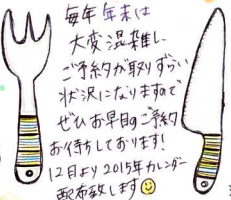 毎年年末は
大変混雑し
ご予約が取りずらい
状況になりますので
ぜひお早目のご予約
お待ちしております!
12日より2015年カレンダー
配布致します